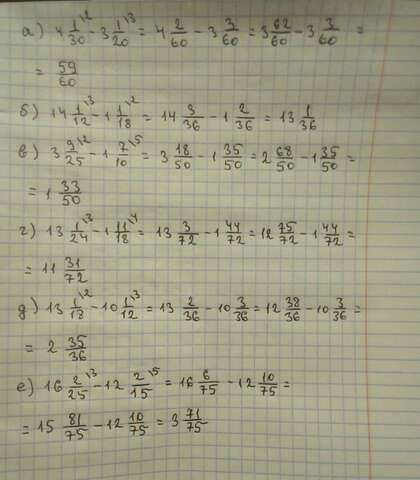 а) 4 1/30 \2 - 3 1/20 \3 = 4 2/60 - 3 3/60 = 3 62/60 - 3 3/60 =
= 59/60
б) 14 1/12 \3 - 1 1/18 \2 = 14 3/36 - 1 2/36 = 13 1/36
в) 3 9/25 \2 - 1 7/10 \5 = 3 18/50 - 1 35/50 = 2 68/50 - 1 35/50 =
= 1 33/50
г) 13 1/24 \3 - 1 11/18 \4 = 13 3/72 - 1 44/72 = 12 75/72 - 1 44/72 =
= 11 31/72
д) 13 1/13 \2 - 10 1/12 \3 = 13 2/36 - 10 3/36 = 12 38/36 - 10 3/36 =
= 2 35/36
е) 16 2/25 \3 - 12 2/15 \5 = 16 6/75 - 12 10/75 =
= 15 81/75 - 12 10/75 = 3 71/75